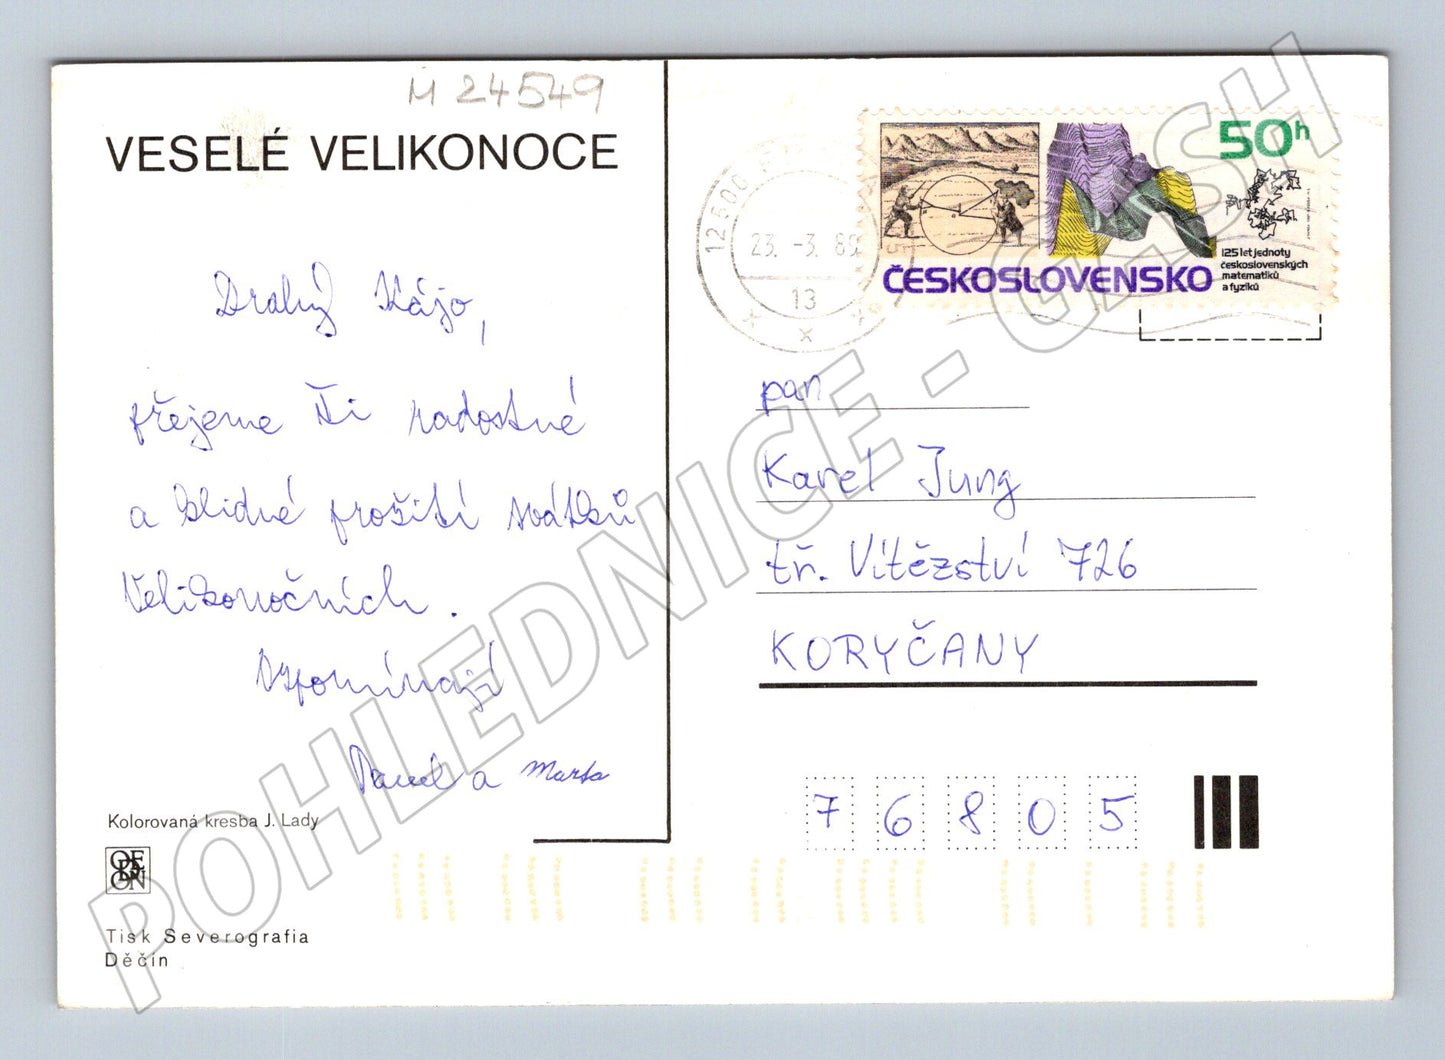 M 24549
VESELÉ VELIKONOCE
Drahý Kájo,
přejeme Ti radostné
a klidné prožití svátků
Velikonočních.
Vzpomínají
Pavel a Marta
Kolorovaná kresba J. Lady
ODEON
Tisk Severografia
Děčín
12500 P
23. -3. 89
13
50h
ČESKOSLOVENSKO
125 let jednoty
československých
matematiků
a fyziků
pan
Karel Jung
tř. Vítězství 726
KORYČANY
76805
POHLEDNICE - GASH